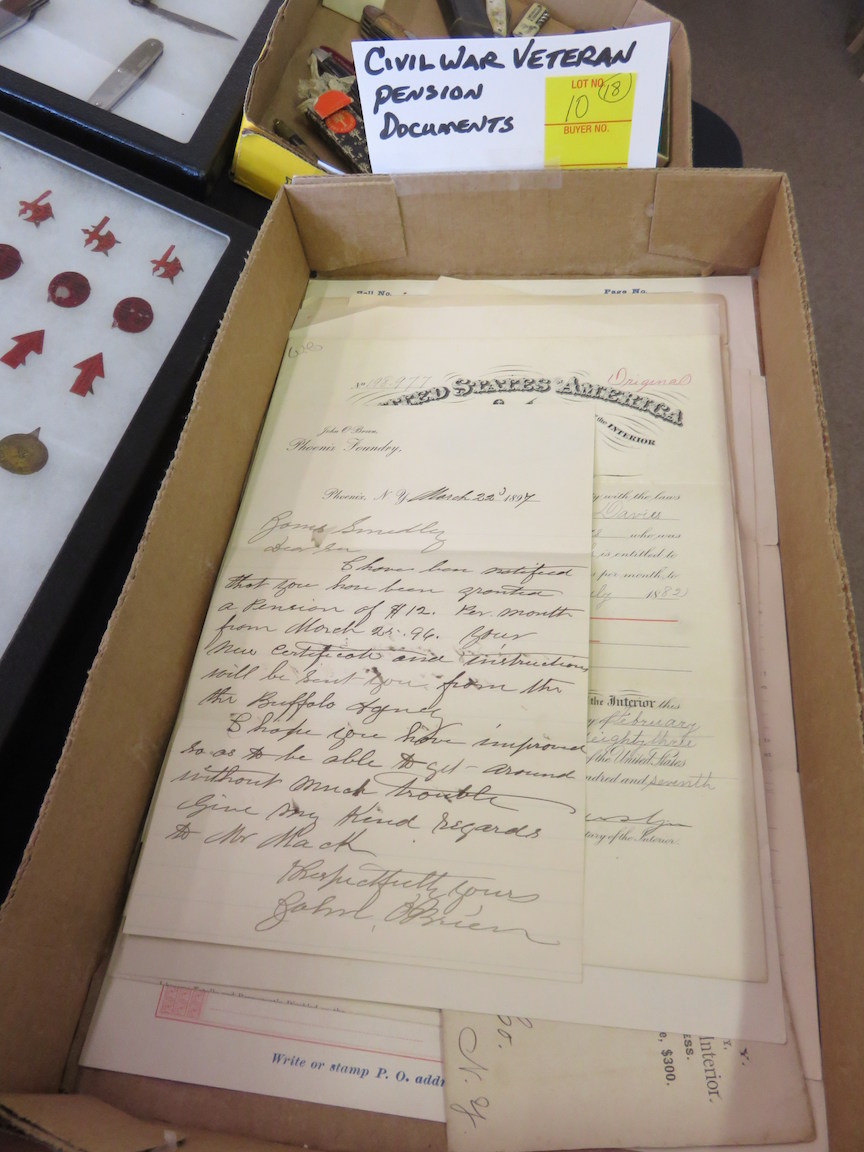 CIVIL WAR VETERAN
PENSION
DOCUMENTS
LOT NO.
10 (18)
BUYER NO.
Roll No.
Page No.
No
977
Original
UNITED STATES OF AMERICA
the INTERIOR
John O'Brien,
Phoenix Foundry,
Phoenix, N. Y. March 22d 1897
Smedley
Dear Sir
I have been notified
that you have been granted
a Pension of $12. Per month
from March 96. Your
New Certificate and instructions
will be sent you from the
the Buffalo Agncy
I hope you have improved
so as to be able to get around
without much trouble
Give my Kind Regards
to Mr Mack
Respectfully Yours
John O'Brien
with the laws
Davis
who was
is entitled to
per month, to
1882
the Interior this
February
eighty three
of the United States
ndred and seventh
tary of the Interior.
Write or stamp P. O. addr
Co.
N. Y.
Interior.
e, $300.